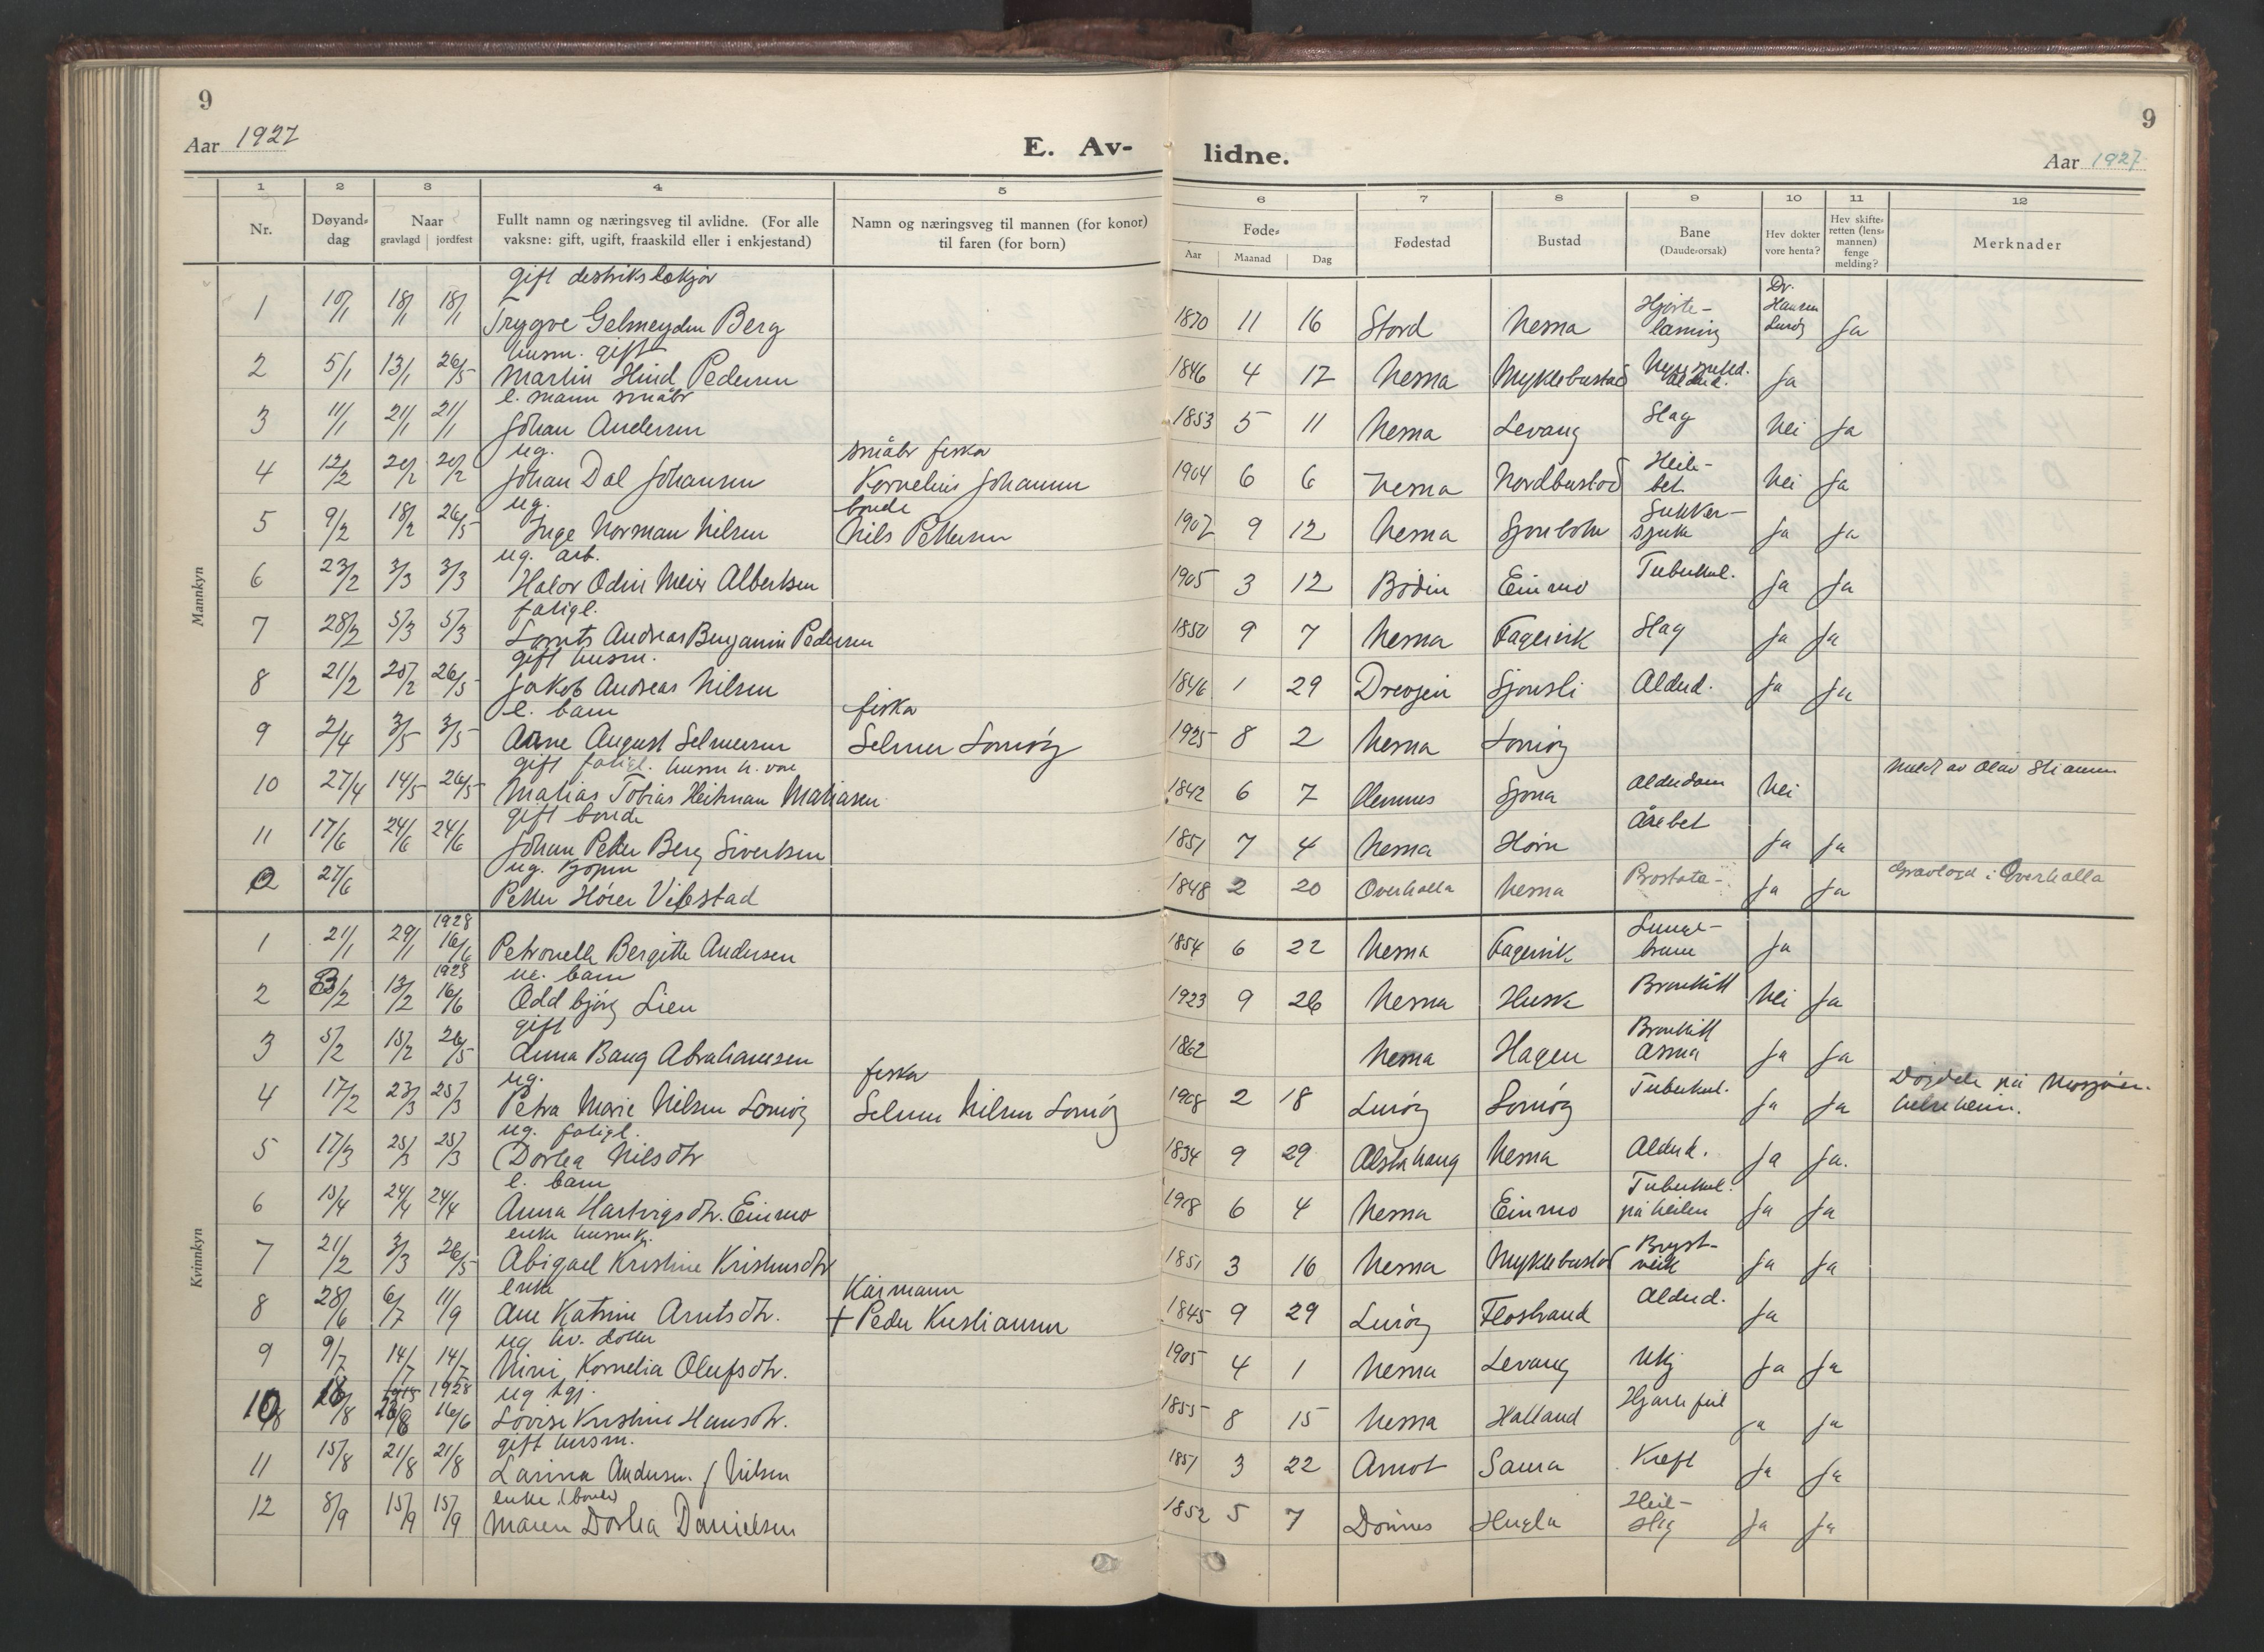 9
9
Aar 1927
E. Av-
lidne.
Aar 1927
1 2 3 4 5 6 7 8 9 10 11 12
Nr.
Døyand-
dag
Naar
gravlagd | jordfest
Fullt namn og næringsveg til avlidne. (For alle
vaksne: gift, ugift, fraaskild eller i enkjestand)
Namn og næringsveg til mannen (for konor)
til faren (for born)
Føde-
Aar Maanad Dag
Fødestad
Bustad
Bane
(Daude-orsak)
Hev dokter
vore henta?
Hev skifte-
retten (lens-
mannen)
fenge
melding?
Merknader
Mannkyn
gift
Dr. Hansen
1 10/1 18/1 18/1 Trygve Berg 1870 11 16 Stord Nesna Hjarte-
laming Lurøy Ja
husm. gift
2 5/1 13/1 26/5 Martin Hind Pedersen 1846 4 17 Nesna Myklebustad Alderd. Ja
e. mann småbr
3 11/1 21/1 21/1 Johan Andersen 1853 5 11 Nesna Levang Slag Nei Ja
ug. småbr fisker
4 12/2 20/2 20/2 Johan Dal Johansen Kornelius Johansen 1904 6 6 Nesna Nordbustad Heile-
bet. Nei Ja
ug. bonde
5 9/2 18/2 26/5 Inge Norman Nilsen Nils Pettersen 1907 9 12 Nesna Sjonbotn Sukker-
sjuke Ja Ja
ug. arb.
6 23/2 3/3 3/3 Halor Odin Meier Albertsen 1905 3 12 Bodin Einmo Tuberkul. Ja Ja
fatigl.
7 28/2 5/3 5/3 Lornts Andreas Benjamin Pedersen 1850 9 7 Nesna Fagervik Slag Ja Ja
gift husm.
8 21/2 25/2 26/5 Jakob Andreas Nilsen 1846 1 29 Drevjen Sjonsli Alderd. Ja Ja
e. barn fisker
9 2/4 3/5 3/5 Arne August Selmersen Selmer Lomøy 1925 8 2 Nesna Lomøy
gift fatigl. husm
10 27/4 14/5 26/5 Matias Tobias Heitman Matiasen 1842 6 7 Hemnes Sjona Alderdom Nei Meld av Olav
gift bonde
11 17/6 24/6 24/6 Johan Peter Berg Sivertsen 1851 7 4 Nesna Horn Årebet Ja Ja
ug. kjøpm
12 27/6 Petter Hører Vibstad 1848 2 20 Overhalla Nesna Prostata- Ja Ja Gravlagd i Overhalla
Kvinnkyn
1928
1 21/1 29/1 16/6 Petronella Bergitte Andersen 1854 6 22 Nesna Fagervik Lunge-
bram Ja
1928 ue. barn
2 3/2 13/2 16/6 Oddbjørg Lien 1923 9 26 Nesna Husk Bronkitt Nei Ja
gift
3 5/2 15/2 26/5 Anna Bang Abrahamsen 1862 Nesna Hagen Bronkitt
Asma Ja Ja
ug. fisker
4 17/2 23/3 25/3 Petra Marie Nilsen Lomøy Selmer Nilsen Lomøy 1908 2 18 Lurøy Lomøy Tuberkul. Ja Ja Døydde på Mosjøen
helseheim.
ug. fatigl.
5 17/3 25/3 25/3 Dortea Nilsdtr 1834 9 29 Alstahaug Nesna Alderd. Ja Ja.
e. barn
6 15/4 24/4 24/4 Anna Hartvigsdtr. Einmo 1918 6 4 Nesna Einmo Tuberkul.
på heilen Ja Ja
enke husmk.
7 21/2 3/3 26/5 Abigael Kristine Kristensdtr 1851 3 16 Nesna Myklebustad Bryst-
veik Ja Ja
enke Kårmann
8 28/6 6/7 11/9 Ane Katrine Arntsdtr. + Peder Kristiansen 1845 9 29 Lurøy Flostrand Alderd. Ja
ug hv. dotter
9 9/7 14/7 14/7 Nini Kornelia Olufsdtr. 1905 4 1 Nesna Levang Ukj Ja Ja
1928 ug tgj.
10 18/8 16/6 Lovise Kristine Hansdtr. 1855 8 15 Nesna Halland Hjartefeil Ja Ja
gift husm.
11 15/8 21/8 21/8 Larina Andersen f Nilsen 1851 3 22 Arnot Saura Kreft Ja Ja
enke (bonde)
12 8/9 15/9 15/9 Maren Dortea Danielsen 1852 5 7 Dønnes Hugla Heile-
slag Ja Ja